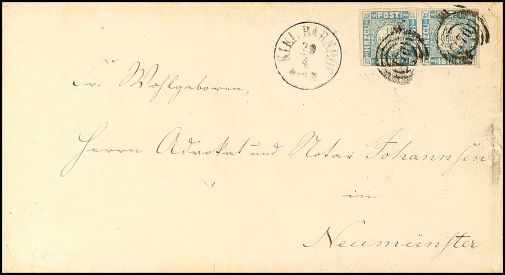 KIEL BAHNHOF
29
4
POST
Sr. Wohlgeboren,
Herrn Advokat und Notar Johannsen
in
Neumünster